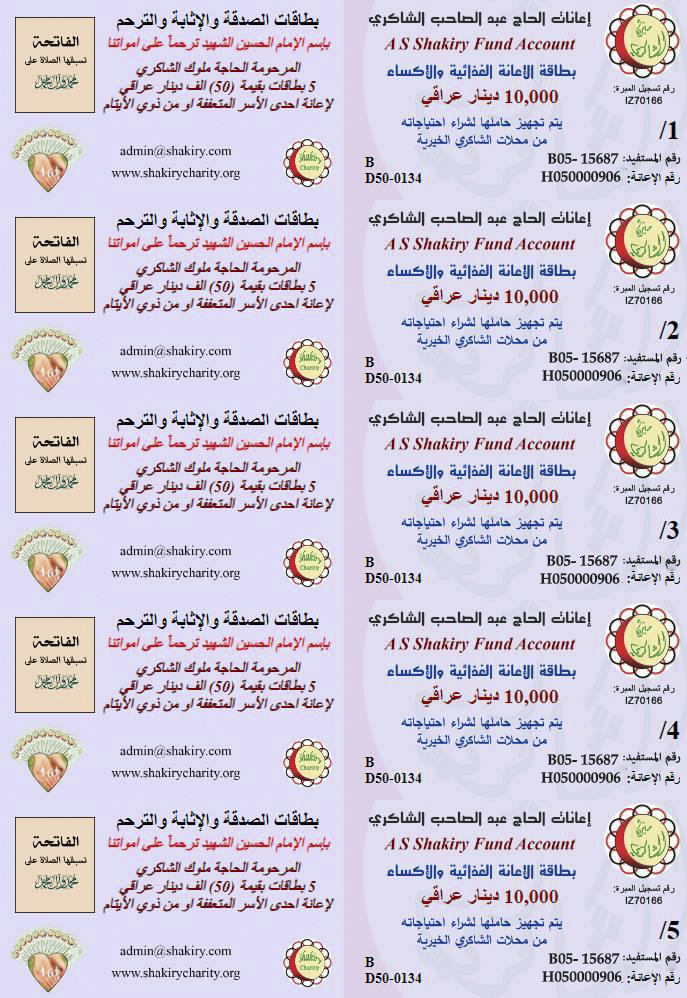 إعانات الحاج عبد الصاحب الشاكري
A S Shakiry Fund Account
بطاقة الاعانة الغذائية والاكساء
10,000 دينار عراقي
يتم تجهيز حاملها لشراء احتياجاته
من محلات الشاكري الخيرية
مبرة الشاكري
رقم تسجيل المبرة:
IZ70166
/1
B رقم المستفيد: B05- 15687
D50-0134 رقم الإعانة: H050000906
بطاقات الصدقة والإثابة والترحم
بإسم الإمام الحسين الشهيد ترحماً على امواتنا
المرحومة الحاجة ملوك الشاكري
5 بطاقات بقيمة (50) الف دينار عراقي
لإعانة احدى الأسر المتعففة او من ذوي الأيتام
الفاتحة
تسبقها الصلاة على
محمد وآل محمد
admin@shakiry.com
www.shakirycharity.org
Shakiry
Charity
إعانات الحاج عبد الصاحب الشاكري
A S Shakiry Fund Account
بطاقة الاعانة الغذائية والاكساء
10,000 دينار عراقي
يتم تجهيز حاملها لشراء احتياجاته
من محلات الشاكري الخيرية
مبرة الشاكري
رقم تسجيل المبرة:
IZ70166
/2
B رقم المستفيد: B05- 15687
D50-0134 رقم الإعانة: H050000906
بطاقات الصدقة والإثابة والترحم
بإسم الإمام الحسين الشهيد ترحماً على امواتنا
المرحومة الحاجة ملوك الشاكري
5 بطاقات بقيمة (50) الف دينار عراقي
لإعانة احدى الأسر المتعففة او من ذوي الأيتام
الفاتحة
تسبقها الصلاة على
محمد وآل محمد
admin@shakiry.com
www.shakirycharity.org
Shakiry
Charity
إعانات الحاج عبد الصاحب الشاكري
A S Shakiry Fund Account
بطاقة الاعانة الغذائية والاكساء
10,000 دينار عراقي
يتم تجهيز حاملها لشراء احتياجاته
من محلات الشاكري الخيرية
مبرة الشاكري
رقم تسجيل المبرة:
IZ70166
/3
B رقم المستفيد: B05- 15687
D50-0134 رقم الإعانة: H050000906
بطاقات الصدقة والإثابة والترحم
بإسم الإمام الحسين الشهيد ترحماً على امواتنا
المرحومة الحاجة ملوك الشاكري
5 بطاقات بقيمة (50) الف دينار عراقي
لإعانة احدى الأسر المتعففة او من ذوي الأيتام
الفاتحة
تسبقها الصلاة على
محمد وآل محمد
admin@shakiry.com
www.shakirycharity.org
Shakiry
Charity
إعانات الحاج عبد الصاحب الشاكري
A S Shakiry Fund Account
بطاقة الاعانة الغذائية والاكساء
10,000 دينار عراقي
يتم تجهيز حاملها لشراء احتياجاته
من محلات الشاكري الخيرية
مبرة الشاكري
رقم تسجيل المبرة:
IZ70166
/4
B رقم المستفيد: B05- 15687
D50-0134 رقم الإعانة: H050000906
بطاقات الصدقة والإثابة والترحم
بإسم الإمام الحسين الشهيد ترحماً على امواتنا
المرحومة الحاجة ملوك الشاكري
5 بطاقات بقيمة (50) الف دينار عراقي
لإعانة احدى الأسر المتعففة او من ذوي الأيتام
الفاتحة
تسبقها الصلاة على
محمد وآل محمد
admin@shakiry.com
www.shakirycharity.org
Shakiry
Charity
إعانات الحاج عبد الصاحب الشاكري
A S Shakiry Fund Account
بطاقة الاعانة الغذائية والاكساء
10,000 دينار عراقي
يتم تجهيز حاملها لشراء احتياجاته
من محلات الشاكري الخيرية
مبرة الشاكري
رقم تسجيل المبرة:
IZ70166
/5
B رقم المستفيد: B05- 15687
D50-0134 رقم الإعانة: H050000906
بطاقات الصدقة والإثابة والترحم
بإسم الإمام الحسين الشهيد ترحماً على امواتنا
المرحومة الحاجة ملوك الشاكري
5 بطاقات بقيمة (50) الف دينار عراقي
لإعانة احدى الأسر المتعففة او من ذوي الأيتام
الفاتحة
تسبقها الصلاة على
محمد وآل محمد
admin@shakiry.com
www.shakirycharity.org
Shakiry
Charity